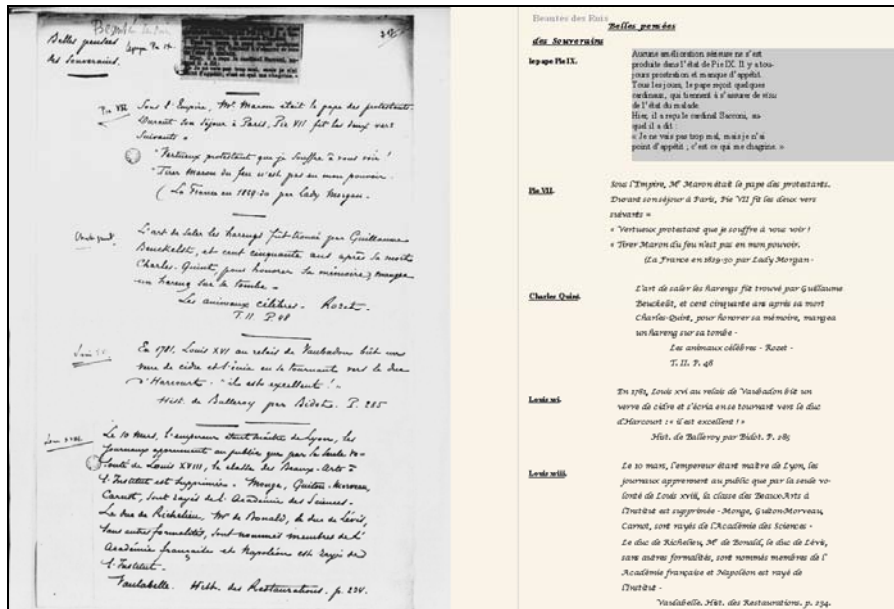 Beauté
Belles pensées
des Souverains.
le pape Pie IX.
Pie VII
Sous l'Empire, Mr. Maron était le pape des protestants.
Durant son séjour à Paris, Pie VII fit les deux vers
suivants =
"Vertueux protestant que je souffre à vous voir !
"Tirer Maron du feu n'est pas en mon pouvoir.
(La France en 1829-30 par Lady Morgan -
L'art de saler les harengs fût trouvé par Guillaume
Beuckelst, et cent cinquante ans après sa mort
Charles-Quint, pour honorer sa mémoire, mangea
un hareng sur sa tombe -
Les animaux célèbres - Rozet -
T. II. P. 48
En 1781, Louis XVI au relais de Vaubadon bût un
verre de cidre et s'écria en se tournant vers le duc
d'Harcourt - "il est excellent !"
Hist. de Balleroy par Bidot. P. 285
Louis XVIII
Le 10 mars, l'empereur étant maître de Lyon, les
journaux apprennent au public que par la seule vo-
lonté de Louis XVIII, la classe des Beaux-Arts à
l'Institut est supprimée - Monge, Guiton-Morveau,
Carnot, sont rayés de l'Académie des Sciences -
Le duc de Richelieu, Mr de Bonald, le duc de Lévis,
sans autres formalités, sont nommés membres de l'
Académie française et Napoléon est rayé de
l'Institut -
Vaulabelle. Hist. des Restaurations. p. 234.
Beautés des Rois
Belles pensées
des Souverains
le pape Pie IX.
Aucune amélioration sérieuse ne s'est
produite dans l'état de Pie IX. Il y a tou-
jours prostration et manque d'appétit.
Tous les jours, le pape reçoit quelques
cardinaux, qui tiennent à s'assurer de visu
de l'état du malade.
Hier, il a reçu le cardinal Sacconi, au-
quel il a dit :
« Je ne vais pas trop mal, mais je n'ai
point d'appétit ; c'est ce qui me chagrine. »
Pie VII.
Sous l'Empire, Mr Maron était le pape des protestants.
Durant son séjour à Paris, Pie VII fit les deux vers
suivants =
« Vertueux protestant que je souffre à vous voir !
« Tirer Maron du feu n'est pas en mon pouvoir.
(La France en 1829-30 par Lady Morgan -
Charles Quint.
L'art de saler les harengs fût trouvé par Guillaume
Beuckelst, et cent cinquante ans après sa mort
Charles-Quint, pour honorer sa mémoire, mangea
un hareng sur sa tombe -
Les animaux célèbres - Rozet -
T. II. P. 48
Louis xvi.
En 1781, Louis xvi au relais de Vaubadon bût un
verre de cidre et s'écria en se tournant vert le duc
d'Harcourt : « il est excellent ! »
Hist. de Balleroy par Bidot. P. 285
Louis xviii.
Le 10 mars, l'empereur étant maître de Lyon, les
journaux apprennent au public que par la seule vo-
lonté de Louis xviii, la classe des Beaux-Arts à
l'Institut est supprimée - Monge, Guiton-Morveau,
Carnot, sont rayés de l'Académie des Sciences -
Le duc de Richelieu, Mr de Bonald, le duc de Lévis,
sans autres formalités, sont nommés membres de l'
Académie française et Napoléon est rayé de
l'Institut -
Vaulabelle. Hist. des Restaurations. p. 234.